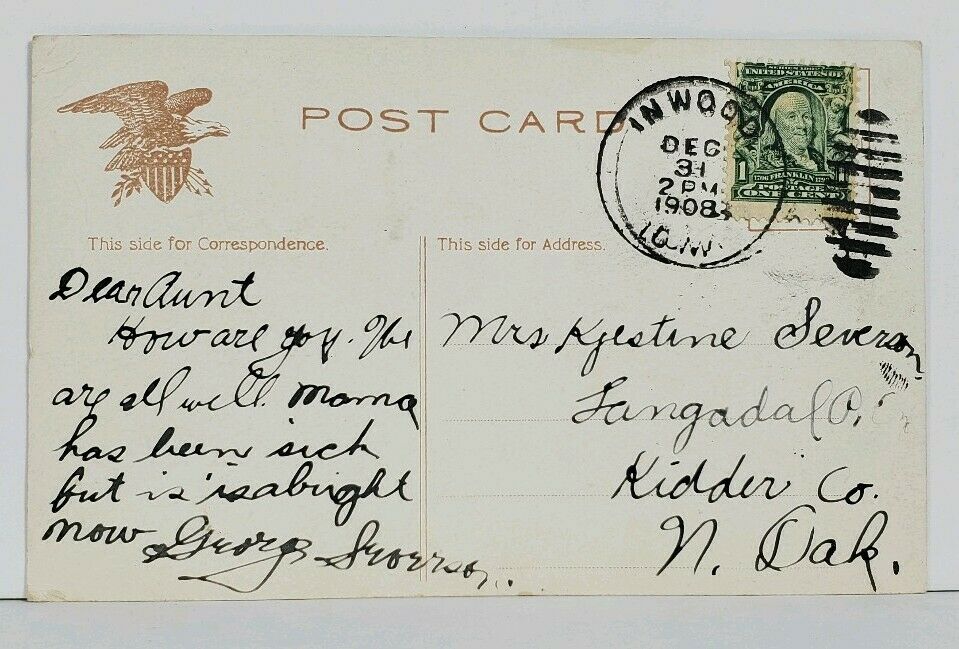 POST CARD
This side for Correspondence.
This side for Address.
INWOOD
DEC
31
2 PM
1908
IOW
SERIES 1902
UNITED STATES OF
AMERICA
1
1706 FRANKLIN 1790
POSTAGE
ONE CENT
Dear Aunt
How are you. We
are all well. Mama
has been sick
but is is abright
now George Severson.
Mrs Kjestine Severson
Langadal P.
Kidder Co.
N. Dak.